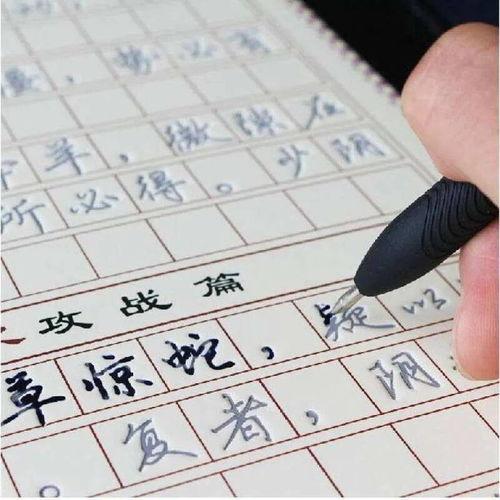 僵，势必有
牵羊，微隙在
所必得。少阴
攻战篇
草惊蛇，疑以
。复者，阴